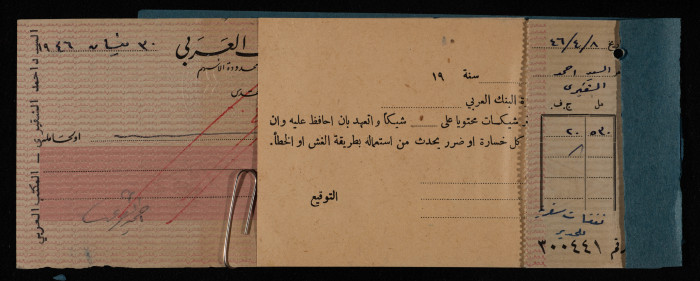 ٣٠ نيسان ١٩٤٦
ـك العربي
محدودة الأسهم
القدس
او لحامله
السيد احمد الشقيري - المكتب العربي
سنة ١٩
ة البنك العربي
شيكات محتويا على ـــ شيكاً واتعهد بان احافظ عليه وان
كل خسارة او ضرر يحدث من استعماله بطريقة الغش او الخطأ.
التوقيع
٤٦/٤/٨
السيد احمد
الشقيري
مل ج.ف.
٥٣٠ ٢٠
نفقات سفرية
رقم ٣٠٠٤٤١